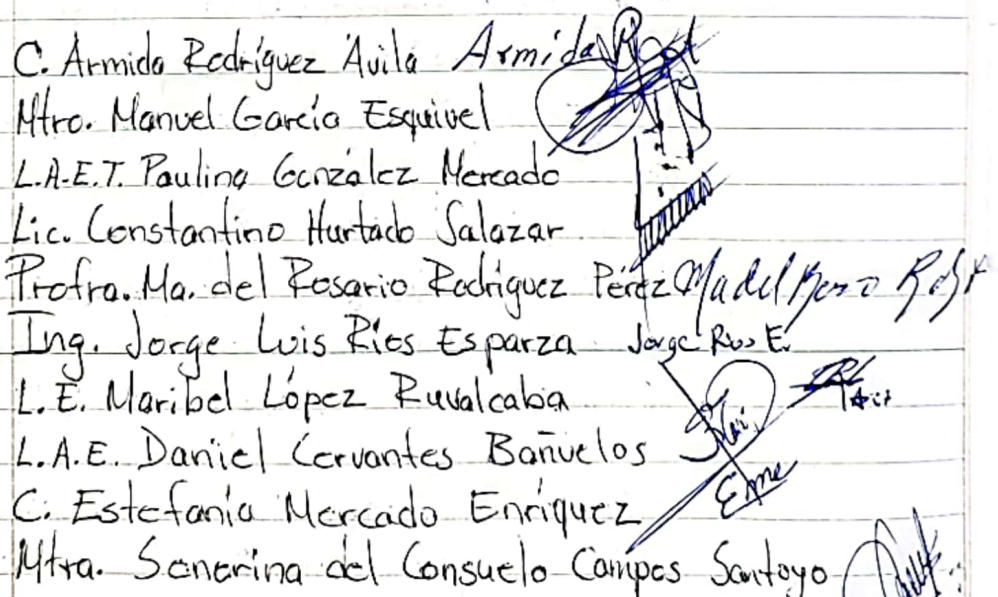 C. Armida Rodríguez Ávila Armida Rod
Mtro. Manuel García Esquivel
L.A.E.T. Paulina González Mercado
Lic. Constantino Hurtado Salazar
Profra. Ma. del Rosario Rodríguez Pérez Ma del
Ing. Jorge Luis Ríos Esparza Jorge Rios E.
L.E. Maribel López Ruvalcaba
L.A.E. Daniel Cervantes Bañuelos
C. Estefanía Mercado Enríquez
Mtra. Senorina del Consuelo Campos Santoyo